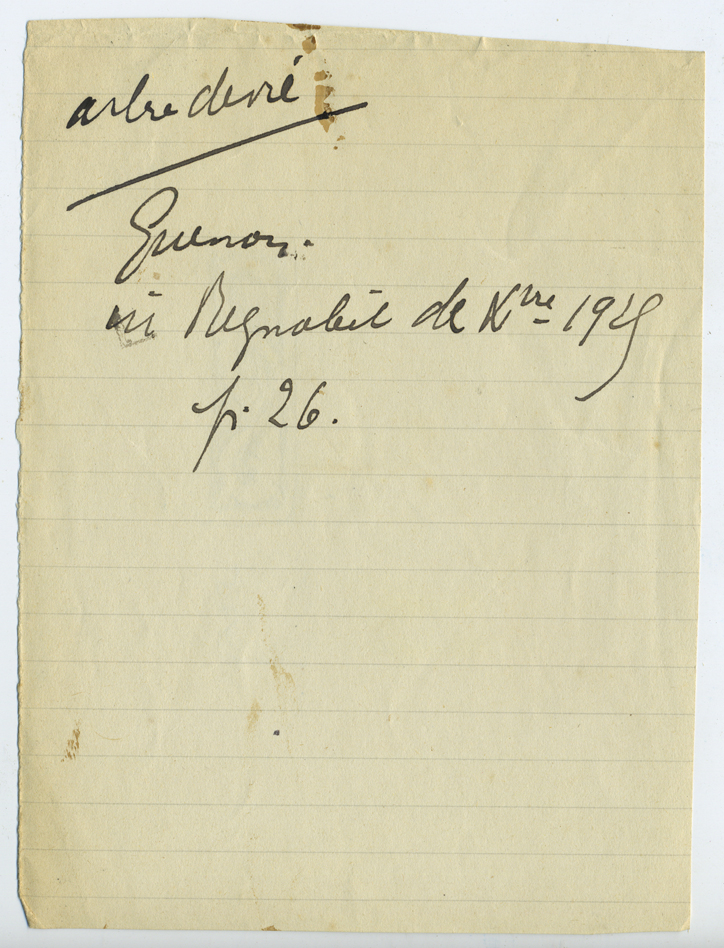 arbre de vie
Guenon.
in Regnabit de Xbre 1925
p. 26.